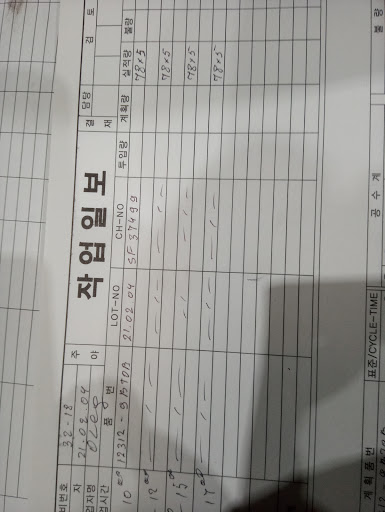 작업일보
결재
담당
검
토
비번호 32-18
자 21.02.04
업자명 OLEg
주
야
업시간
품 번
LOT-NO
CH-NO
투입량
계획량
실적량
불량
10 12312-9B70B 21.02.04 SF37499 78x5
12 78x5
15 78x5
17 78x5
표준/CYCLE-TIME
공 수 계
불 량
계획품번